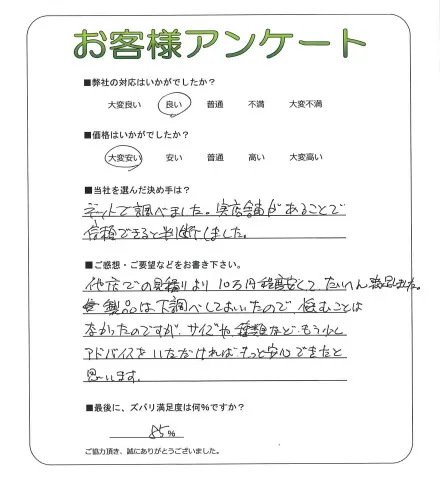 お客様アンケート
■弊社の対応はいかがでしたか？
大変良い 良い 普通 不満 大変不満
■価格はいかがでしたか？
大変安い 安い 普通 高い 大変高い
■当社を選んだ決め手は？
ネットで調べました。実店舗があることで
信頼できると判断しました。
■ご感想・ご要望などをお書き下さい。
他店での見積りより10万円程度安くて たいへん
製品は下調べしておいたので 悩むことは
なかったのですが サイズや種類など もう少し
アドバイスをいただければもっと安心できたと
思います。
■最後に、ズバリ満足度は何％ですか？
85%
ご協力頂き、誠にありがとうございました。